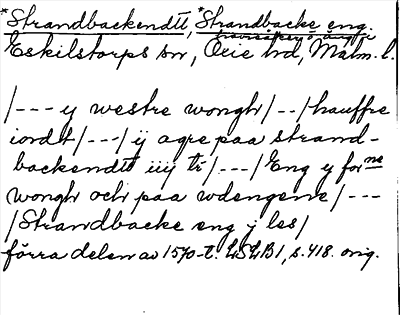 *Strandbackendtt, *Strandbacke eng.
Eskilstorps sn, Oxie hd, Malm. l.
/--- y westre wongh/--/hauffre
iordt/---/ij agre paa strand-
backendtt iiij tr/---/Eng y forne
wongh och paa wdengene/---
/Strandbacke eng j les/
förra delen av 1570-t. LSLB1, s. 418. orig.